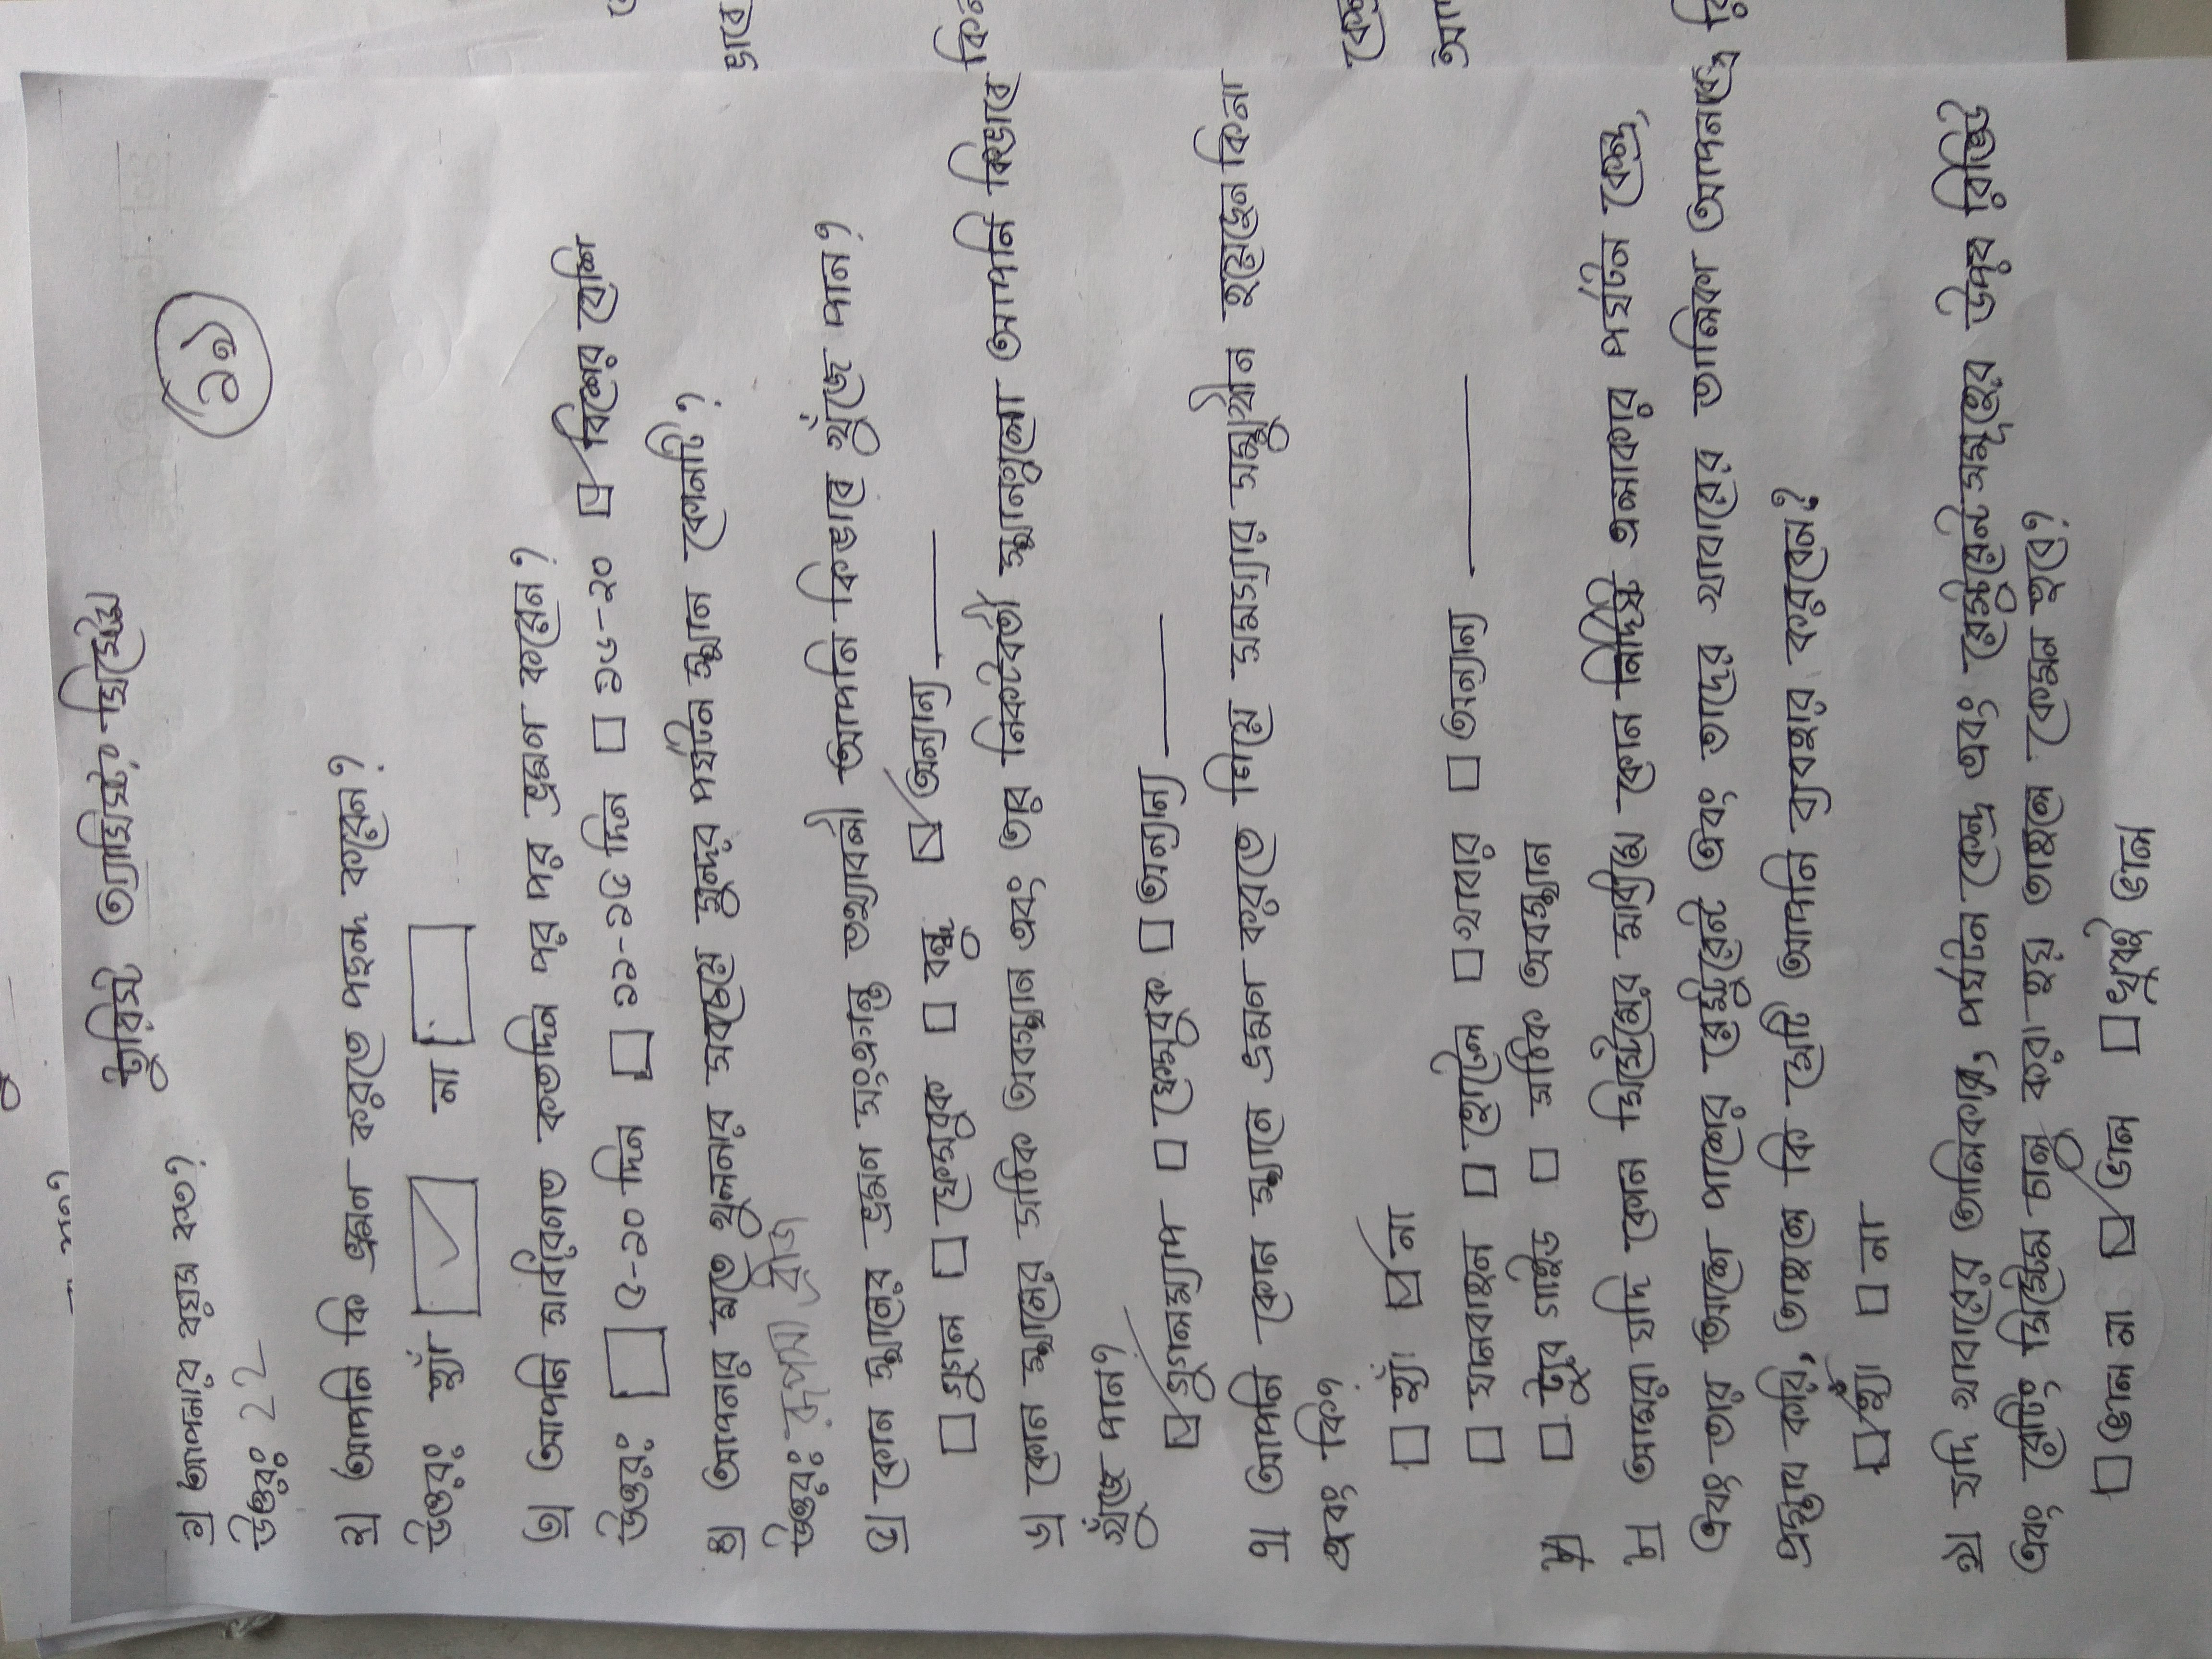 ট্যুরিস্ট অ্যাসিস্ট্যান্ট সিস্টেম
২১
১) আপনার বয়স কত?
উত্তরঃ 22
২) আপনি কি ভ্রমন করতে পছন্দ করেন?
উত্তরঃ হ্যাঁ না
৩) আপনি সাধারণত কতদিন পর পর ভ্রমণ করেন?
উত্তরঃ ৫-১০ দিন ১১-১৫ দিন ১৬-২০ বিশের বেশি
৪) আপনার মতে খুলনার সবচেয়ে সুন্দর পর্যটন স্থান কোনটি?
উত্তরঃ রূপসা ব্রীজ
৫) কোন স্থানের ভ্রমন সংক্রান্ত তথ্যাবলী আপনি কিভাবে খুঁজে পান?
গুগল ফেসবুক বন্ধু অন্যান্য
৬) কোন স্থানের সঠিক অবস্থান এবং তার নিকটবর্তী স্থানগুলো আপনি কিভাবে
খুঁজে পান?
গুগলম্যাপ ফেসবুক অন্যান্য
৭) আপনি কোন স্থানে ভ্রমন করতে গিয়ে সমস্যার সম্মুখীন হয়েছেন কিনা
এবং কি?
হ্যাঁ না
যানবাহন হোটেল খাবার অন্যান্য
ট্যুর গাইড সঠিক অবস্থান
৮) আমরা যদি কোন সিস্টেমের মাধ্যমে কোন নির্দিষ্ট এলাকার পর্যটন কেন্দ্র,
এবং তার আশে পাশের রেস্টুরেন্ট এবং তাদের খাবারের তালিকা আপনাকে
প্রস্তাব করি, তাহলে কি সেটি আপনি ব্যবহার করবেন?
হ্যাঁ না
৯) যদি খাবারের তালিকার, পর্যটন কেন্দ্র এবং রেস্টুরেন্ট সমূহের উপর রিভিউ
এবং রেটিং সিস্টেম চালু করা হয় তাহলে কেমন হবে?
ভাল না ভাল খুবই ভাল